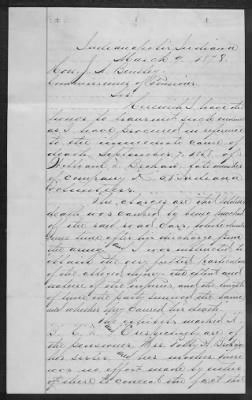 Indianapolis, Indiana
March 9, 1878.
Hon. J. A. Bentley
Commissioner of Pensions.
Sir:
Herewith I have the
honor to transmit such evidence
as I have procured in reference
to the immediate cause of
death, September 7, 1867, of
William, late member
of Company D Indiana
Volunteers.
The charges are that the
death was caused by being knocked
off the rail road cars, while drunk
some time after his discharge from
the army. I was instructed to
obtain the very fullest particulars
of the alleged injury, the extent and
nature of the injuries, and the length
of time the party survived the same
and whether they caused his death.
The exhibits marked A.
B. C. & are of
the pensioner Mrs.
her sister and her mother. There
was no effort made by either
of these to conceal the fact that